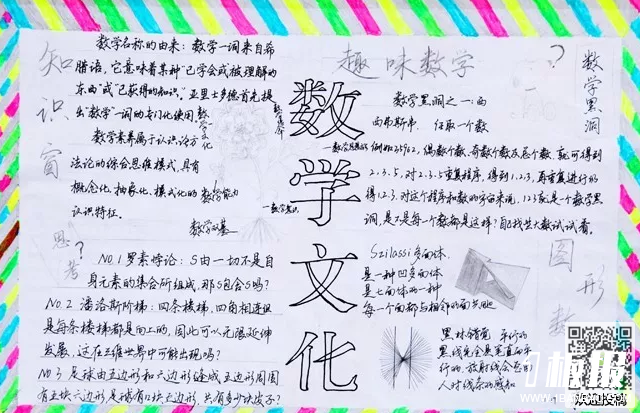 知识窗
数学名称的由来：数学一词来自希
腊语，它意味着某种“已学会或被理解的
东西”或“已获得的知识”。亚里士多德首先提
出“数学”一词的专门化使用
数学素养属于认识论方
法论的综合思维模式，具有
概念化、抽象化、模式化的
认识特征。
数学文化
数学能力
数学双基
数学意识
思考？
NO.1 罗素悖论：S由一切不是自
身元素的集合所组成，那S包含S吗？
NO.2 潘洛斯阶梯：四条楼梯，四角相连但
是每条楼梯都是向上的，因此可以无限延伸
发展，这在三维世界中可能出现吗？
NO.3 足球由五边形和六边形缝成，五边形周围
有五块六边形
数学文化
趣味数学
？
数学黑洞
数学黑洞之一：西
西弗斯串． 任取一个数
例如35962，偶数个数、奇数个数及总个数，就可得到
2.3.5，对2.3.5重复程序，得到1.2.3，再重复进行仍
得1.2.3，对这个程序和数的宇宙来说，123就是一个数学黑
洞，是不是每一个数都是这样？自己找些大数试试看。
图形数
Szilassi多面体，
是一种凹多面体
是七面体的一种
每一个面都与相邻的面共边
黑林错觉 平行的
黑线完全是笔直而平
行的，放射线会歪曲
人对线条的感知